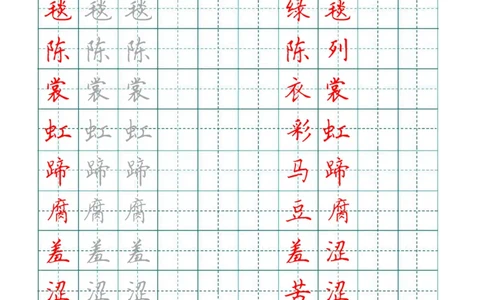 毯 毯 毯 绿 毯
陈 陈 陈 陈 列
裳 裳 裳 衣 裳
虹 虹 虹 彩 虹
蹄 蹄 蹄 马 蹄
腐 腐 腐 豆 腐
羞 羞 羞 羞 涩
涩 涩 涩 苦 涩